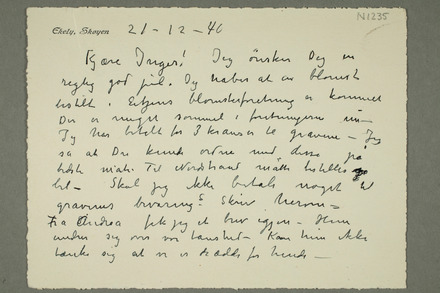 N1235
Ekely, Skøyen
21-12-40
Kjære Inger! Jeg ønsker Dig en
rigtig god jul. Og håber at en blomst
bestilt i Eriksens blomsterforretning er kommet
Der er meget sommel i forretningerne nu –
Jeg har betalt for 3 kranser til gravene – Jeg
sa at Du kunde ordne med disse på
bedste måte. Til Nordstrand måtte bestilles
bet – Skal jeg ikke betale noget til
gravenes bevaring? Skriv herom –
Fra Andrea fik jeg et brev igjen. Hun
undrer sig over vor taushed – Kan hun ikke
tænke sig at vi er rædde for hende –